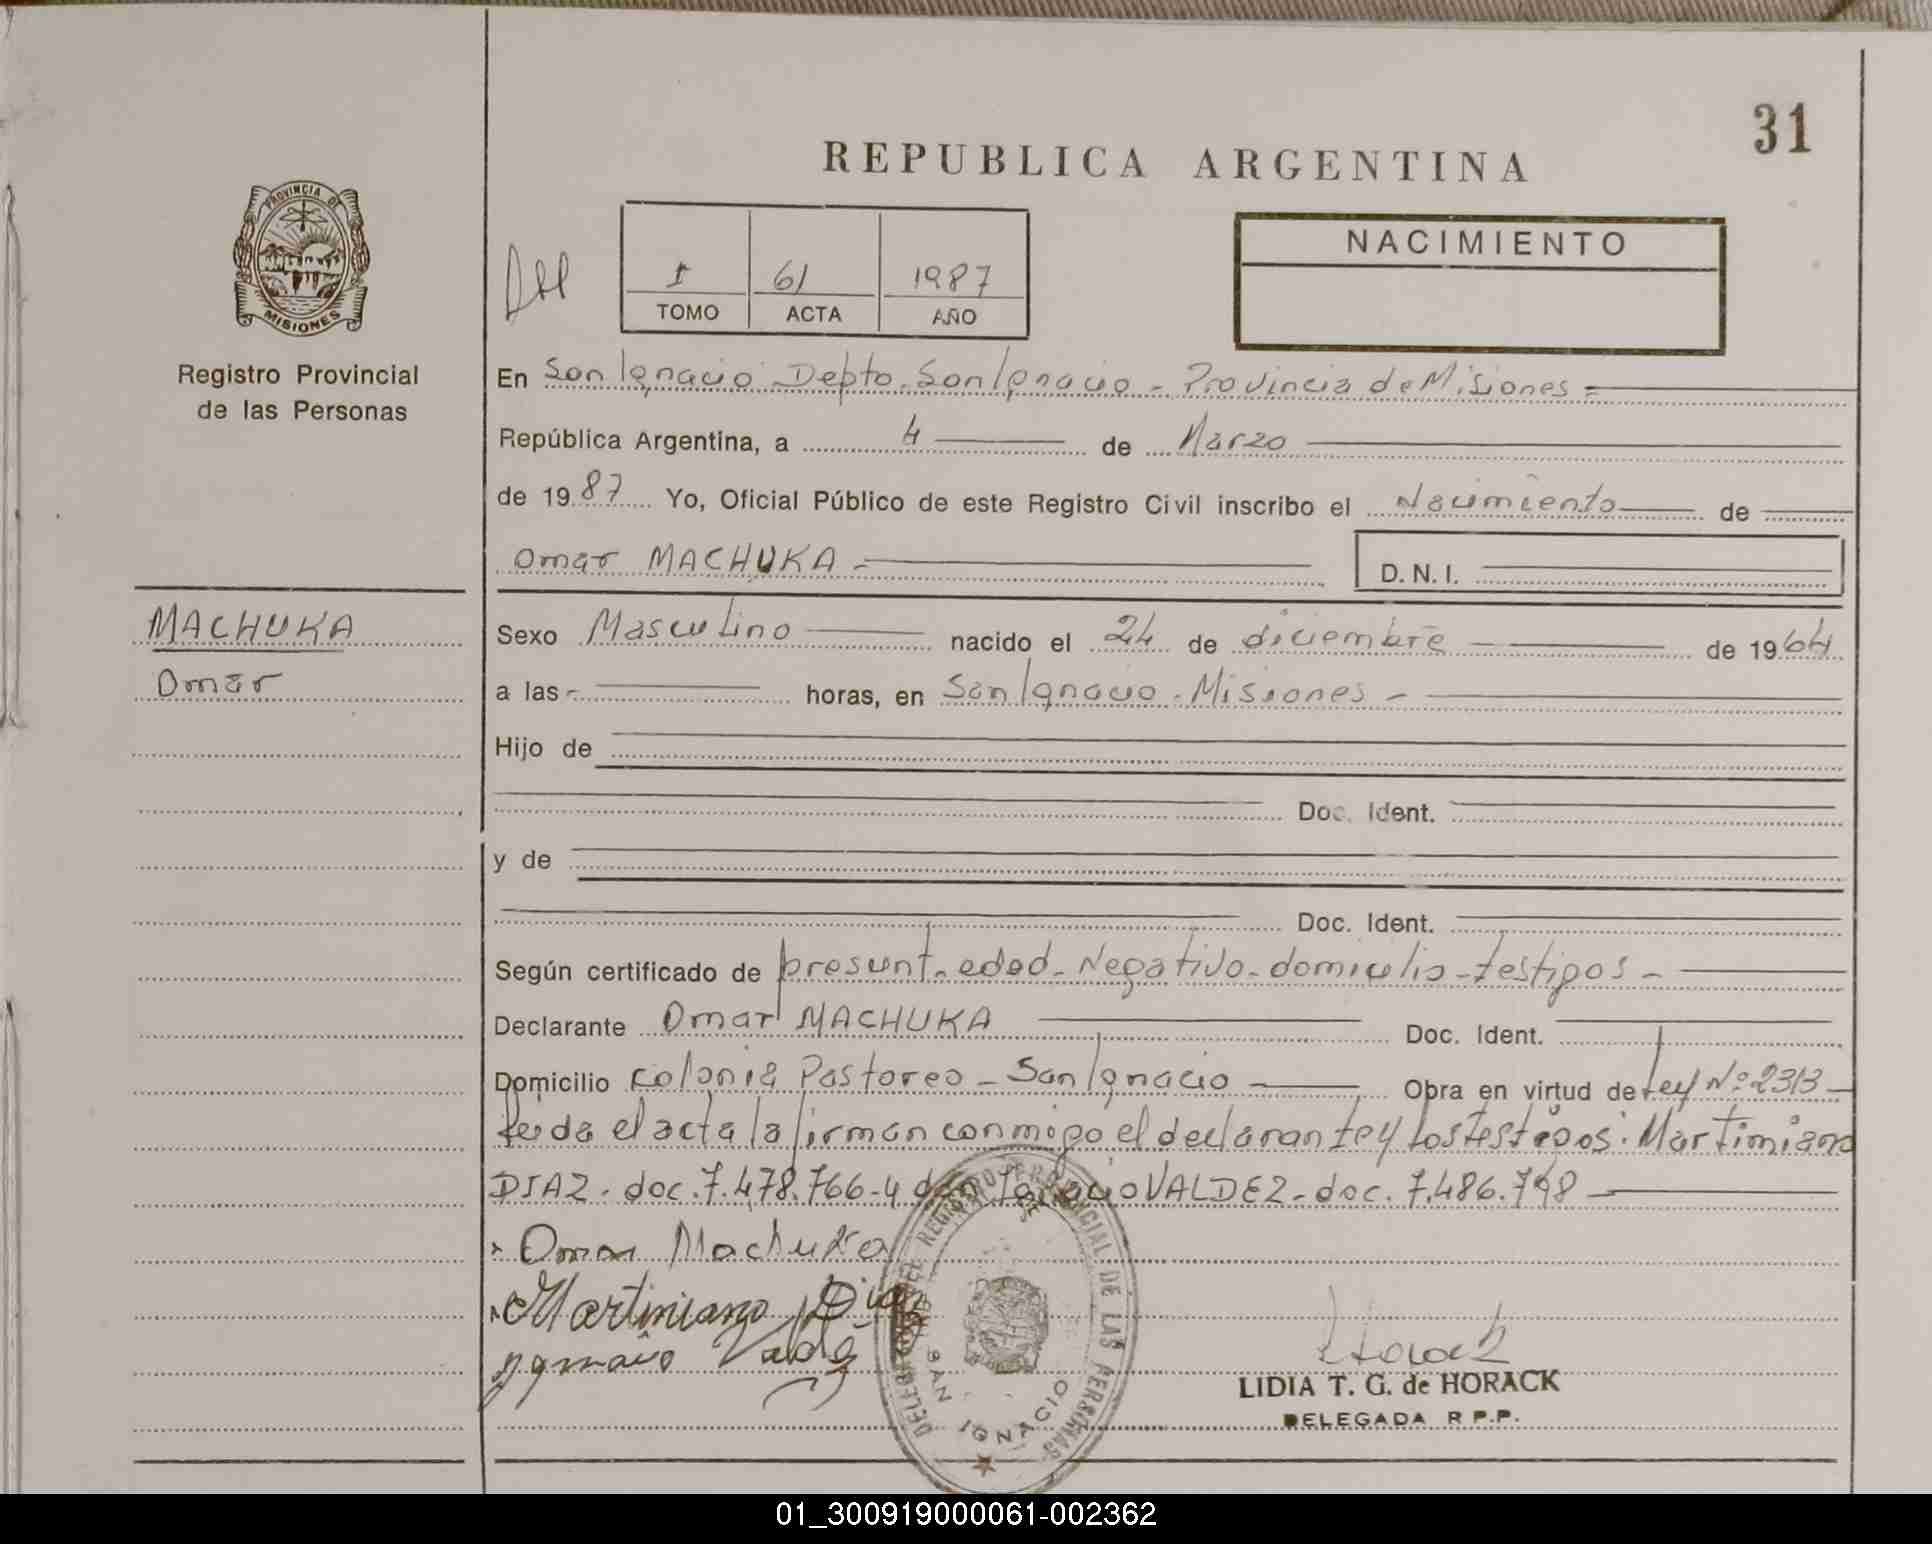 31
REPUBLICA ARGENTINA
PROVINCIA DE
MISIONES
Registro Provincial
de las Personas
I 61 1987
TOMO ACTA AÑO
NACIMIENTO
En San Ignacio Depto. San Ignacio - Provincia de Misiones =
República Argentina, a 4 de Marzo
de 1987 Yo, Oficial Público de este Registro Civil inscribo el Nacimiento de
Omar MACHUKA - D.N.I.
MACHUKA
Omar
Sexo Masculino nacido el 24 de diciembre de 1964
a las - horas, en San Ignacio - Misiones -
Hijo de
Doc. Ident.
y de
Doc. Ident.
Según certificado de presunt. edad - Negativo - domicilio - testigos -
Declarante Omar MACHUKA Doc. Ident.
Domicilio Colonia Pastoreo - San Ignacio Obra en virtud de Ley Nº 2313 -
leida el acta la firman conmigo el declarante y los testigos: Martimiano
DIAZ - doc. 7.478.766 - y don Ignacio VALDEZ - doc. 7.486.798
Omar Machuka
Martiniano Diaz
Ygnacio Valdez
DELEGACION DEL REGISTRO PROVINCIAL DE LAS PERSONAS
SAN IGNACIO
Horack
LIDIA T. G. de HORACK
DELEGADA R.P.P.
01_300919000061-002362